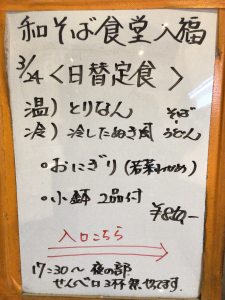 和そば食堂 入福
3/24 <日替定食>
温) とりなん そば
冷) 冷したぬき風 うどん
・おにぎり (若菜わかめ)
・小鉢 2品付
入口こちら
17:30〜 夜の部
せんべロ 3杯